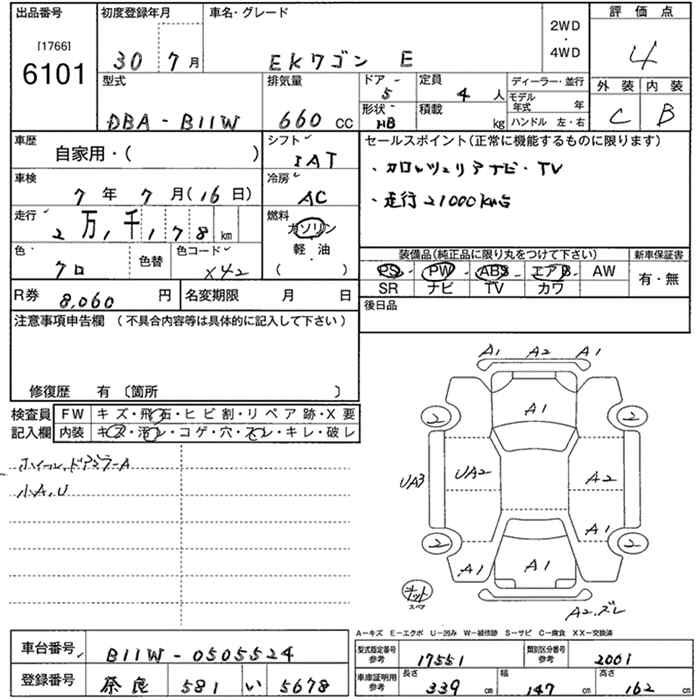 出品番号
[1766]
6101
初度登録年月
30 7月
車名・グレード
EKワゴン E
2WD
・
4WD
評価点
4
外装 内装
C B
型式
DBA-B11W
排気量
660 CC
ドア
5
形状
HB
定員
4 人
積載
kg
ディーラー・並行
モデル年式 年
ハンドル 左・右
車歴
自家用・( )
シフト
IAT
車検
7年7月(16日)
冷房
AC
走行
2万1千178 km
燃料
ガソリン
軽・油
( )
色
クロ
色替
色コード
X42
セールスポイント(正常に機能するものに限ります)
・カロッツェリアナビ・TV
・走行21000km台
装備品(純正品に限り丸をつけて下さい)
PS PW ABS エアB AW
SR ナビ TV カワ
新車保証書
有・無
R券 8,060 円
名変期限 月 日
後日品
注意事項申告欄 (不具合内容等は具体的に記入して下さい)
修復歴 有 〔箇所 〕
検査員
記入欄
FW キズ・飛石・ヒビ割・リペア跡・X要
内装 キズ・汚レ・コゲ・穴・スレ・キレ・破レ
ホイール、ドアミラーA
小A、U
A1 A2 A1
A1
2 2
UA3 UA2 A2
A1
2 2
A1 A1
キット
スペア
A2、ズレ
A-キズ E-エクボ U-凹み W-補修跡 S-サビ C-腐食 XX-交換済
車台番号 B11W-0505524
登録番号 奈良 581 い 5678
型式指定番号
参考
17551
類別区分番号
参考
2001
車庫証明用
参考
長さ 339 cm
幅 147 cm
高さ 162 cm